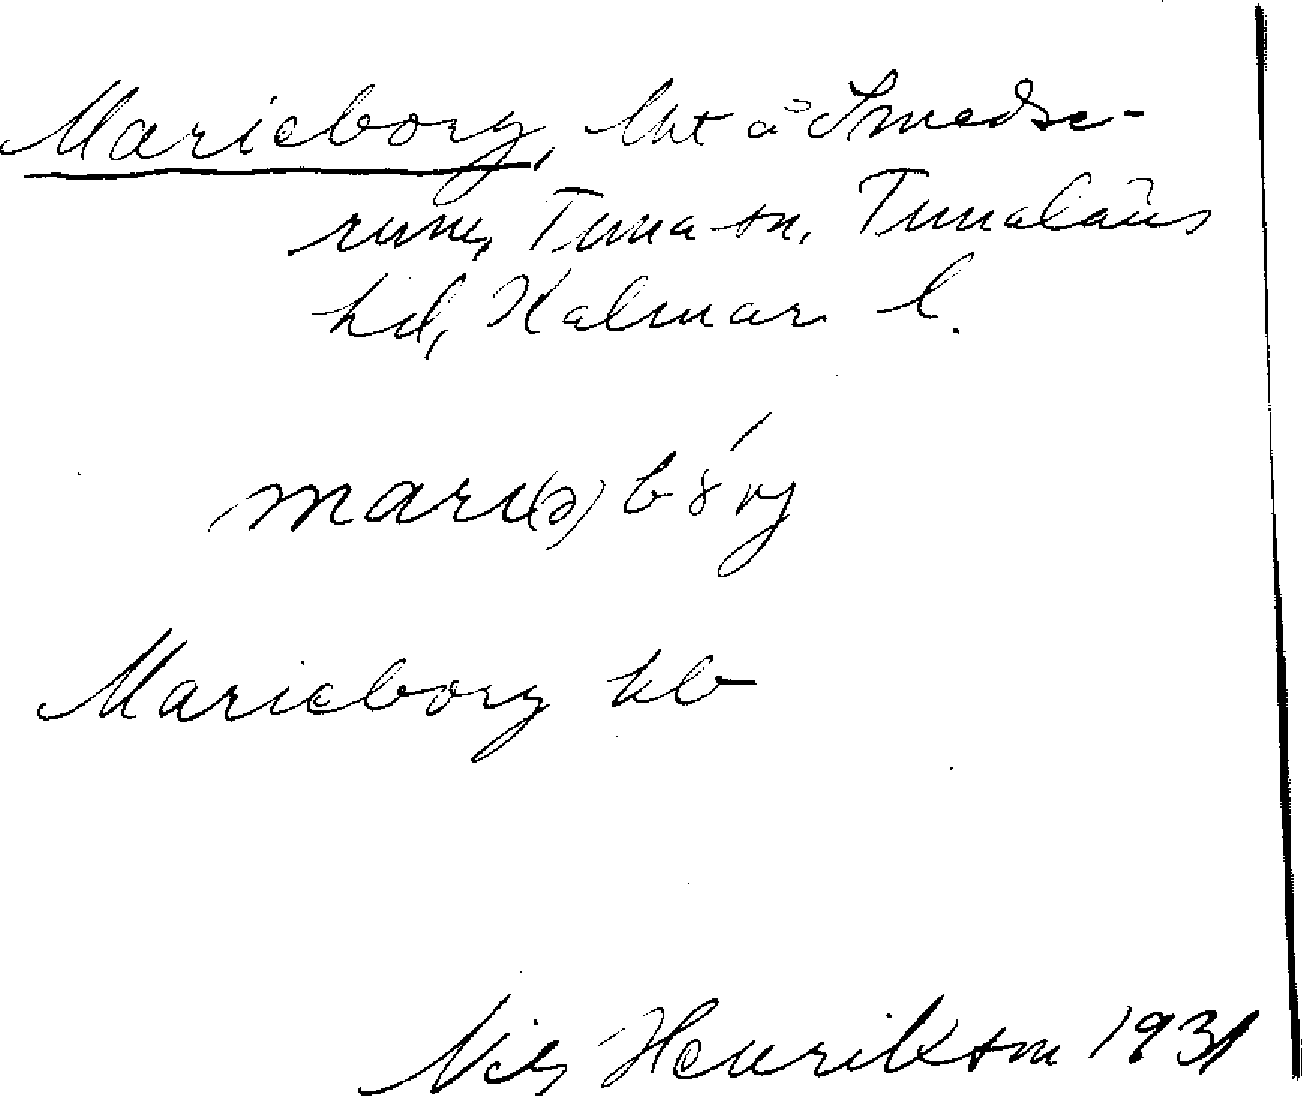 Marieborg, lht å Smedse-
rum, Tuna sn. Tunaläns
hd, Kalmar l.
mari(ə)bórj
Marieborg kb
Nils Henrikson 1931